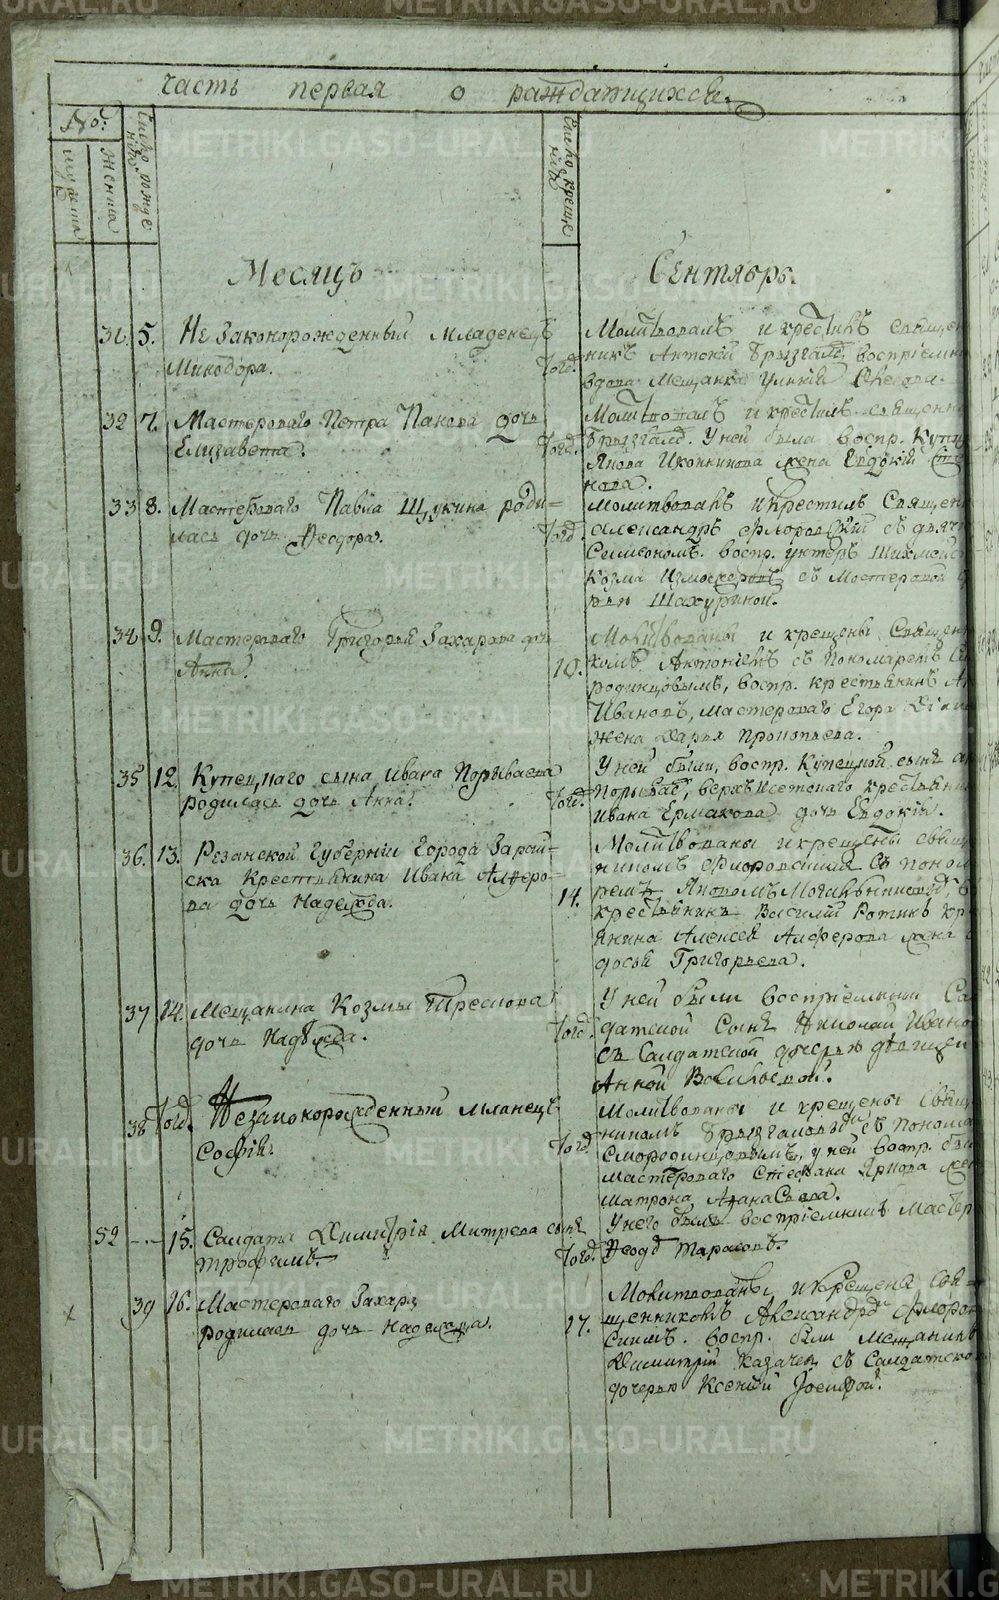 часть первая о раждающихся.
No:
мужска
женска
Число рожде
нiй
Число креще
нiй
Месяцъ
Сентябрь.
31. 5. Незаконорожденный младенецъ
Минодора.
Тогд.
Молитвовалъ и крестилъ священ
никъ Антонiй Брызгалъ, воспрiемни
вдова мещанка
32 7. Мастероваго Петра Панова дочь
Елизавета.
Тогд.
Молитвовалъ и крестилъ священн
Брызгалъ. У ней была воспр. Купц
Якова Иконникова жена Евдокiй
нова.
33 8. Мастероваго Павла Щукина роди-
лась дочь Феодора.
Тогд.
Молитвовалъ и крестилъ Священ
Александръ Флоровскiй съ дьяч
Симеономъ. воспр. унтеръ Шихмей
козма съ Мастеровой
Шахуриной.
34 9. Мастероваго Григорья Захарова доч
Анна.
10.
Молитвованы и крещены Священ
комъ Антонiемъ съ пономаремъ См
родинцовымъ, воспр. крестьянинъ А
Ивановъ, мастероваго Егора
жена Дарья Прокопьева.
35 12. Купецкаго сына Ивана Порываева
родилась дочь Анна.
Тогд.
У ней были, воспр. Купецкой сынъ
Порывае, верхъ Исетскаго крестьяни
Ивана Ермакова дочь Евдокiя.
36. 13. Резанской губернiи Города Зарай-
ска Крестьянина Ивана Алферо-
ва дочь Надежда.
14.
Молитвованы и крещены свящ
никомъ Флоровскимъ съ поном
ремъ Яковомъ
крестьянинъ Василiй Ротинъ кр
янина Алексея Алферова жена
досья Григорьева.
37 14. Мещанина Козмы Треснова
дочь Надежда.
Тогд.
У ней были воспрiемники Сал
датской Сынъ Николай Ивано
съ Салдатской дочерью девицей
Анной Васильевой.
38 Тогд. Незаконорожденный мланецъ
Софiя.
Тогд
Молитвованы и крещены Свящ
никомъ Брызгаловымъ съ понома
Смородинцовымъ, у ней воспр. был
мастероваго Стефана жен
матрона Афанасьева.
52 - 15. Салдаты Димитрiя Митрева сынъ
трофимъ.
Тогд.
У него былъ воспрiемникъ Мастер
Феодъ Тарасовъ.
39 16. Мастероваго Захара
родилась дочь Надежда.
17.
Молитвованы и крещена Свя-
щенникомъ Александромъ Флоров
скимъ. воспр. были мещанинъ
Димитрiй Казачен съ Салдатско
дочерью Ксенiй